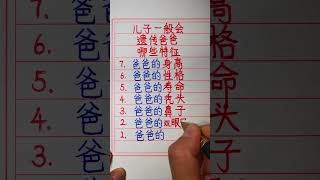 儿子一般会
遗传爸爸
哪些特征
7. 爸爸的身高
6. 爸爸的性格
5. 爸爸的寿命
4. 爸爸的秃头
3. 爸爸的鼻子
2. 爸爸的双眼
1. 爸爸的